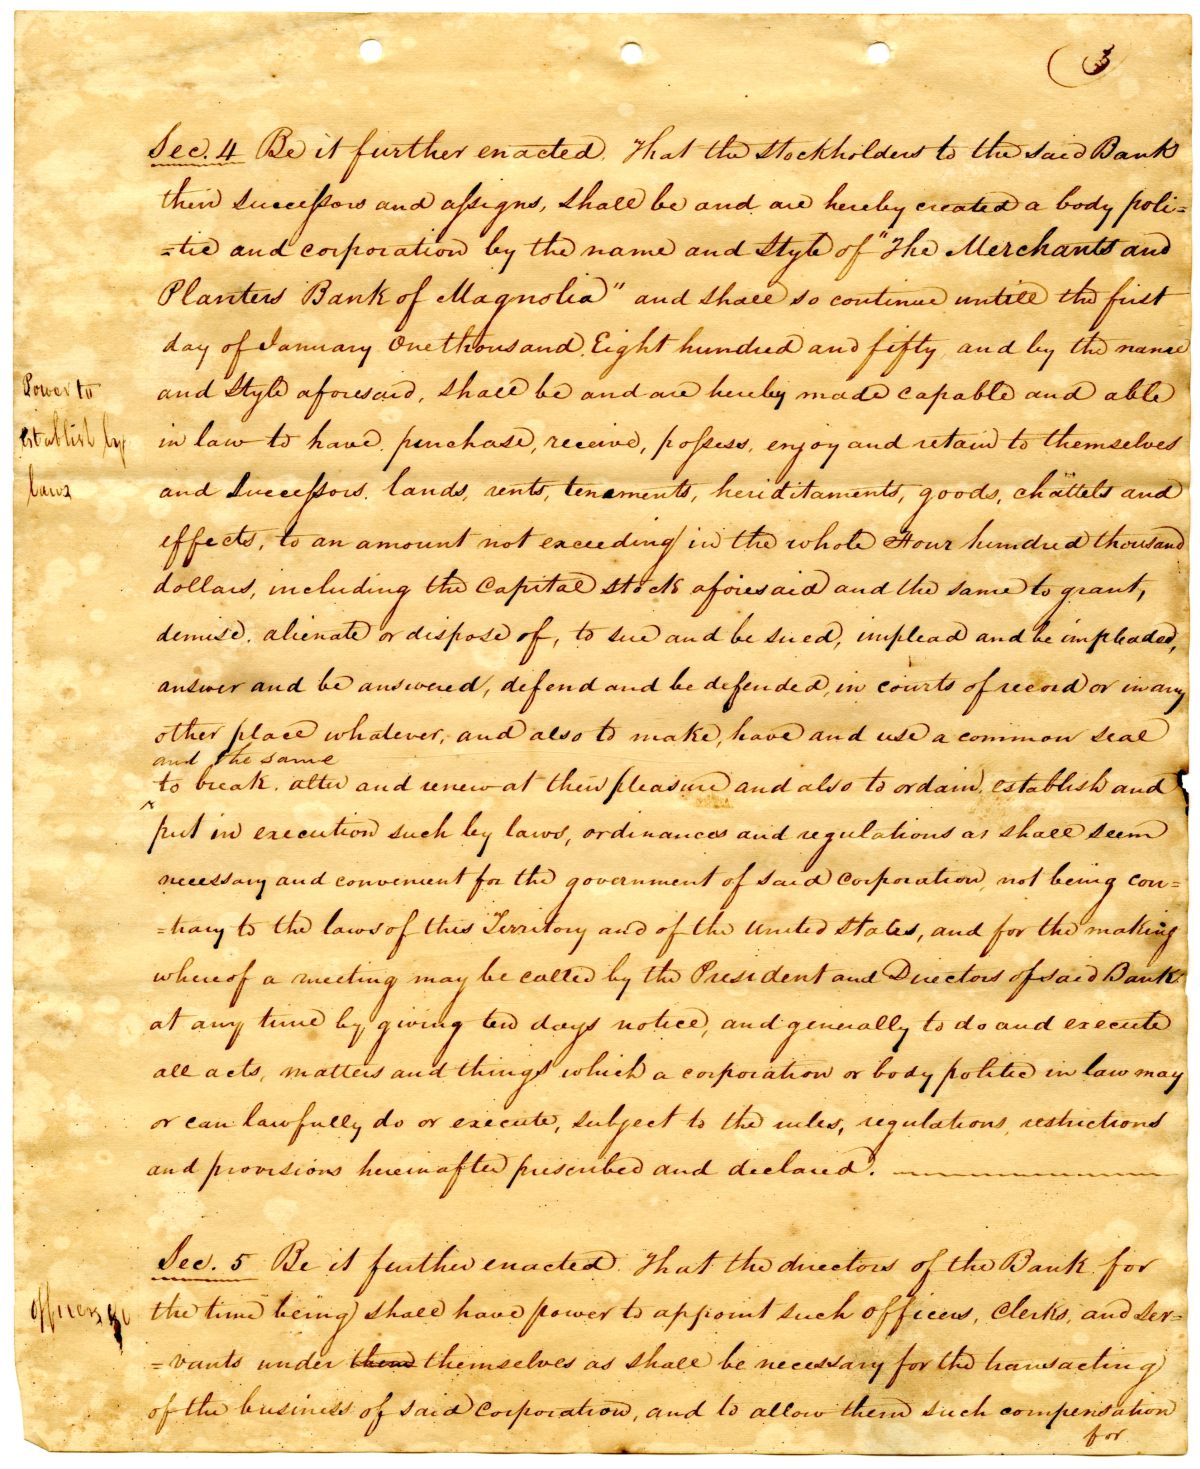 3
Sec. 4 Be it further enacted. That the stockholders to the said Bank
their successors and assigns, shall be and are hereby created a body poli=
=tic and corporation by the name and Style of "The Merchants and
Planters Bank of Magnolia" and shall so continue untill the first
day of January One thousand Eight hundred and fifty, and by the name
Power to
and Style aforesaid, shall be and are hereby made capable and able
establish by
in law to have, purchase, receive, possess, enjoy and retain to themselves
laws
and Successors, lands, rents, tenements, heriditaments, goods, chattels and
effects, to an amount not exceeding in the whole Four hundred thousand
dollars, including the Capital Stock aforesaid and the same to grant,
demise, alienate or dispose of, to sue and be sued, implead and be impleaded,
answer and be answered, defend and be defended, in courts of record or in any
other place whatever, and also to make, have and use a common seal
and the same
to break, alter and renew at their pleasure and also to ordain, establish and
put in execution such by laws, ordinances and regulations as shall seem
necessary and convenient for the government of said corporation, not being con=
=trary to the laws of this Territory and of the United States, and for the making
whereof a meeting may be called by the President and Directors of said Bank
at any time by giving ten days notice, and generally to do and execute
all acts, matters and things which a corporation or body politic in law may
or can lawfully do or execute, subject to the rules, regulations, restrictions
and provisions hereinafter prescribed and declared.
Sec. 5 Be it further enacted. That the directors of the Bank for
Officers &c
the time being shall have power to appoint such officers, Clerks, and ser=
=vants under them themselves as shall be necessary for the transacting
of the business of said Corporation, and to allow them such compensation
for